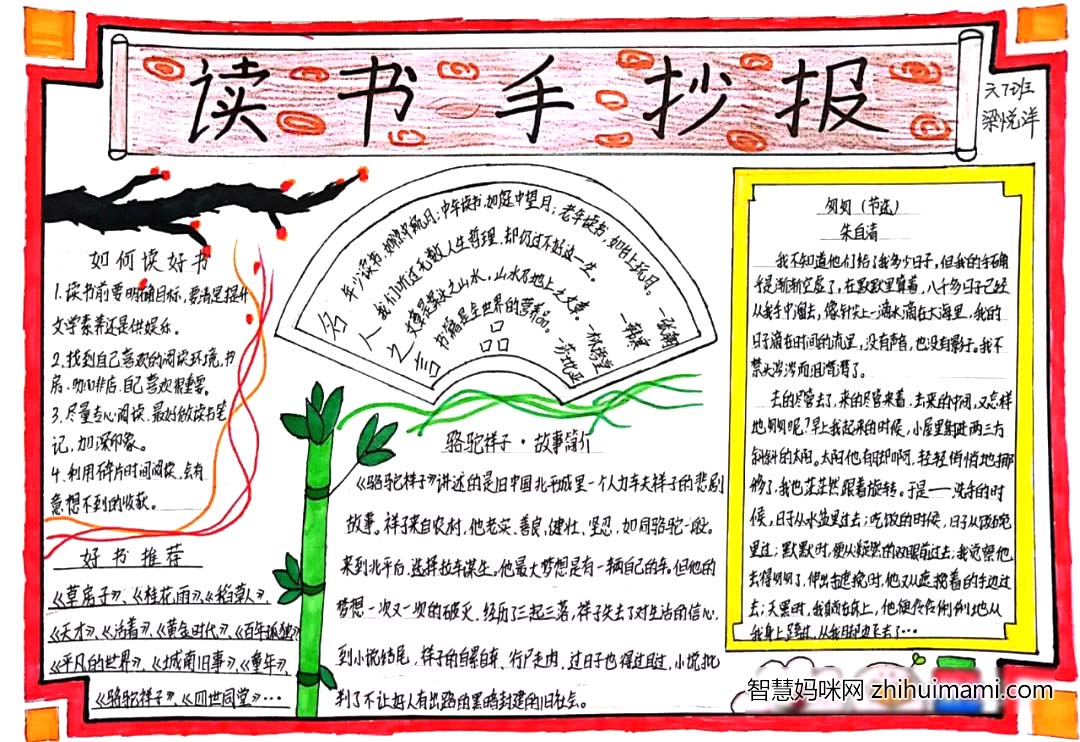 读书手抄报
六7班
梁悦洋
如何读好书
1.读书前要明确目标,要清是提升
文学素养还是供娱乐。
2.找到自己喜欢的阅读环境,书
房、咖啡店,自己喜欢很重要。
3.尽量专心阅读,最好做读书笔
记,加深印象。
4.利用碎片时间阅读,会有
意想不到的收获。
好书推荐
《草房子》、《桂花雨》、《稻草人》、
《天才》、《活着》、《黄金时代》、《百年孤独》
《平凡的世界》、《城南旧事》、《童年》、
《骆驼祥子》、《四世同堂》…
名人之言
年少读书,如隙中窥月;中年读书,如庭中望月;老年读书,如台上玩月。
—张潮
我们听过无数人生哲理,却仍过不好这一生。
—韩寒
文章是案头之山水,山水是地上之文章。
书籍是全世界的营养品。
品
骆驼祥子·故事简介
《骆驼祥子》讲述的是旧中国北平城里一个人力车夫祥子的悲剧
故事。祥子来自农村,他老实、善良、健壮、坚忍,如同骆驼一般。
来到北平后,选择拉车谋生,他最大梦想是有一辆自己的车。但他的
梦想一次又一次的破灭,经历了三起三落,祥子失去了对生活的信心,
到小说结尾,祥子的自暴自弃、行尸走肉,过日子也得过且过,小说批
判了不让好人有出路的黑暗封建的旧社会。
匆匆(节选)
朱自清
我不知道他们给了我多少日子,但我的手确
乎是渐渐空虚了,在默默里算着,八千多日子已经
从我手中溜去,像针尖上一滴水滴在大海里,我的
日子滴在时间的流里,没有声音,也没有影子。我不
禁头涔涔而泪潸潸了。
去的尽管去了,来的尽管来着,去来的中间,又怎样
地匆匆呢?早上我起来的时候,小屋里射进两三方
斜斜的太阳。太阳他有脚啊,轻轻悄悄地挪
移了,我也茫茫然跟着旋转。于是——洗手的时
候,日子从水盆里过去;吃饭的时候,日子从饭碗
里过;默默时,便从凝然的双眼前过去;我觉察他
去得匆匆了,伸出手遮挽时,他又从遮挽着的手边过
去;天黑时,我躺在床上,他便伶伶俐俐地从
我身上跨过,从我脚边飞去了…
智慧妈咪网 zhihuimami.com